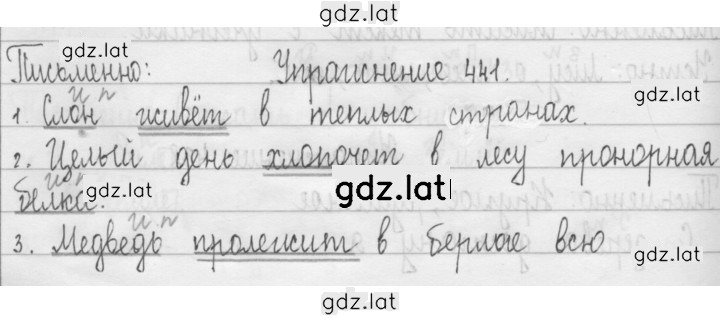 gdz.lat
gdz.lat
Письменно: Упражнение 441.
и п
1. Слон живёт в теплых странах.
gdz.lat
2. Целый день хлопочет в лесу проворная
и п
белка.
gdz.lat
gdz.lat
и п
3. Медведь пролежит в берлоге всю
gdz.lat
gdz.lat